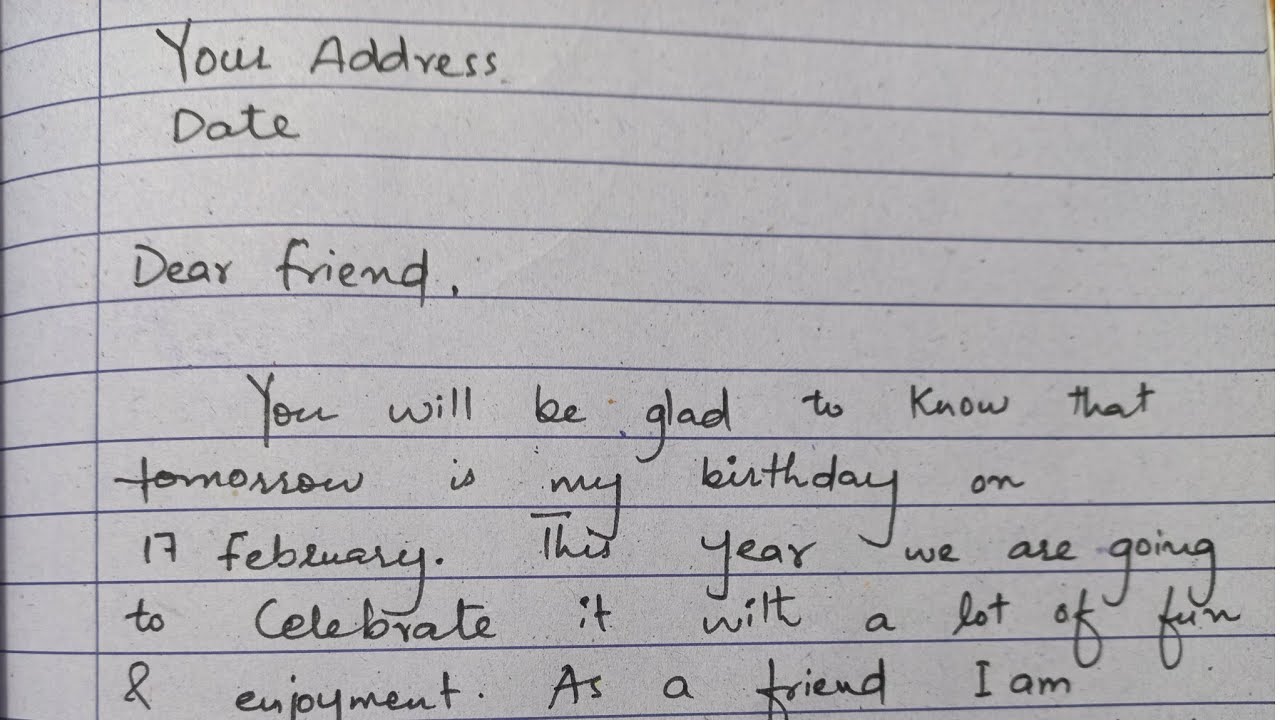 Your Address
Date
Dear friend,
You will be glad to know that
tomorrow is my birthday on
17 february. This year we are going
to Celebrate it with a lot of fun
& enjoyment. As a friend I am